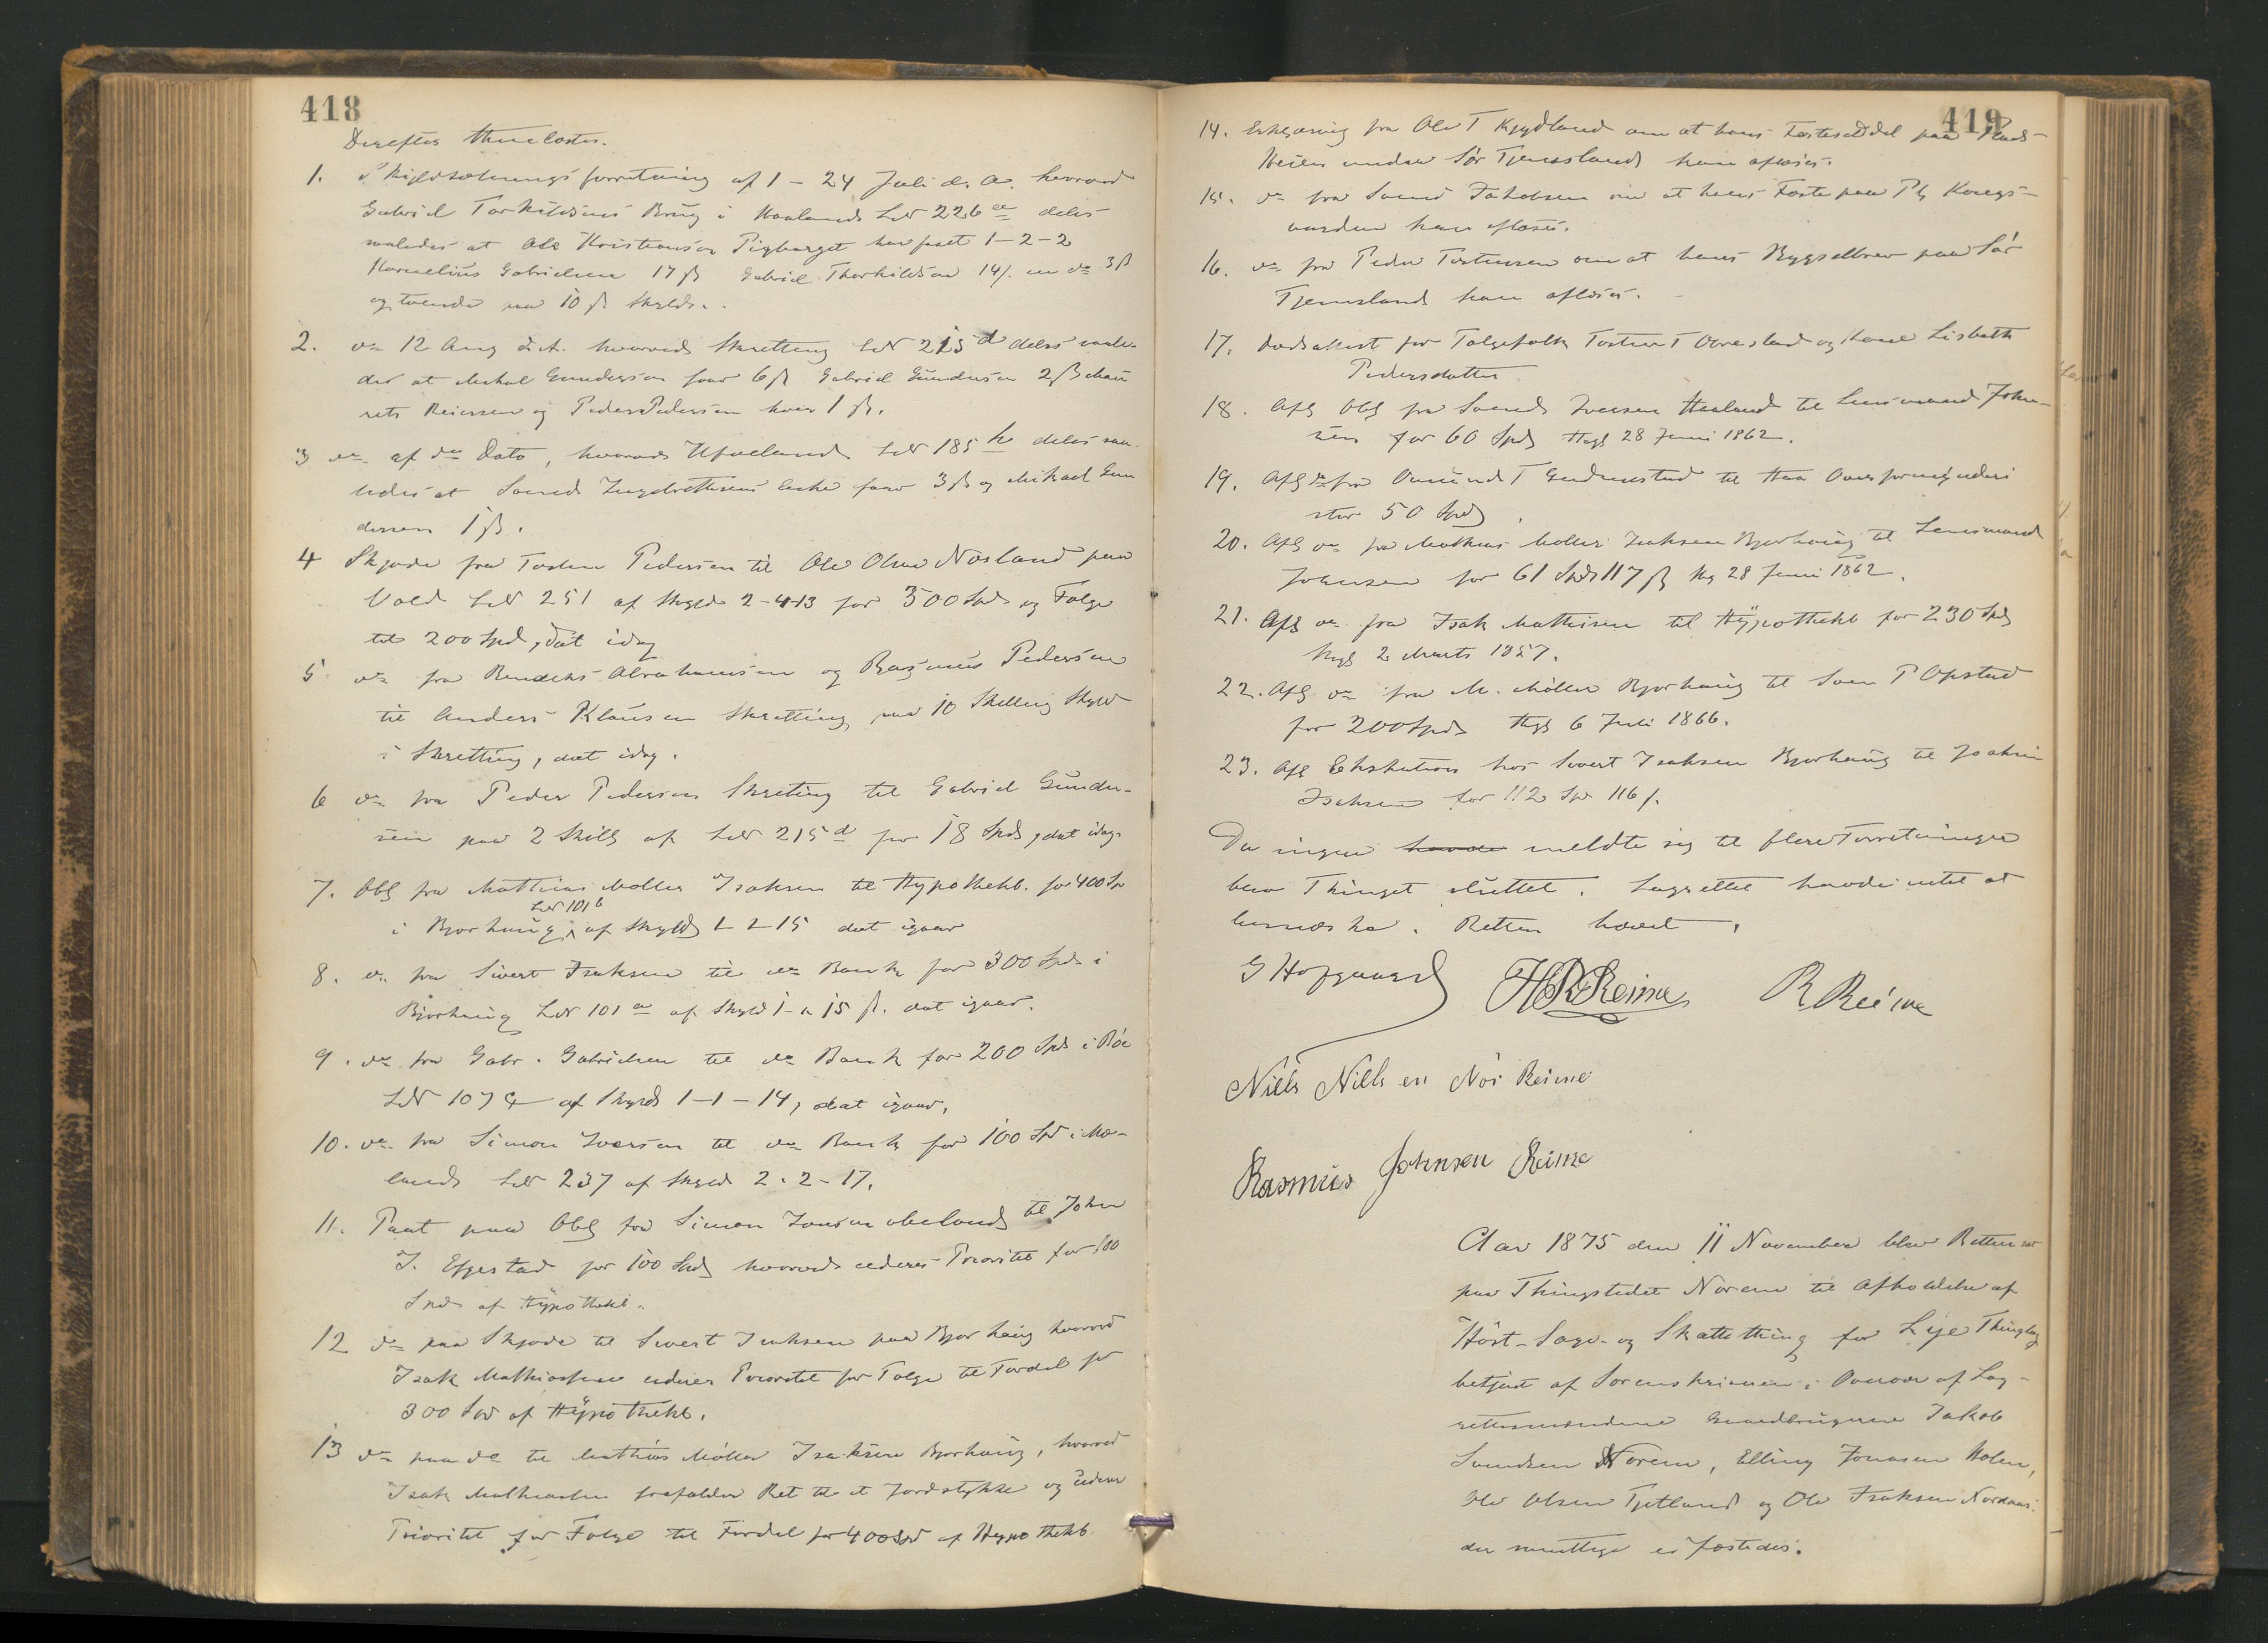 418
Derefter thinglæstes.
1. Skyldsætningsforretning af 1 - 24 Juli d. A. hvorved
Gabriel Torkildsens Brug i Haaland LN 226 deles
saaledes at Ole Kristiansen har faaet 1-2-2
Kornelius Gabrielsen 17 ß Gabriel Thorkildsen 14 ß. en do 3 ß
og tvende paa 10 ß Skyld.
2. do 12 Aug d. A. hvorved Skretting LN 215 d deles saale-
des at Mikal Gundersen faar 6 ß Gabriel Gundersen 2 ß Mau
rits Reiersen og Peder Pedersen hver 1 ß.
3 do af do Dato, hvorved Ueland LN 185 h deles saa-
ledes at Svend Ingebrethsens Enke faar 3 ß og Mikael Gun
dersen 1 ß.
4 Skjøde fra Torsten Pedersen til Ole Olsen Nosland paa
Vold LN 251 af Skyld 2-4-13 for 300 Spd og Følge
til 200 Spd, dat idag
5. do fra Bendiks Abrahamsen og Rasmus Pedersen
til Anders Klausen Skretting paa 10 Skilling Skyld
i Skretting, dat idag.
6 do fra Peder Pedersen Skretting til Gabriel Gunder-
sen paa 2 Skill af LN 215 d for 18 Spd, dat idag.
7. Oblg fra Mathias Møller Isaksen til Hypothekb. for 400 Sp
LN 101 b
i Bjorhaug, af Skyld 1-2-15 dat igaar
8. do fra Sivert Isaksen til do Bank for 300 Spd i
Bjorhaug LN 101 a af Skyld 1-2-15 ß. dat igaar.
9. do fra Gabr. Gabrielsen til do Bank for 200 Spd i Røe
LN 107 c af Skyld 1-1-14, dat igaar.
10. do fra Simon Iversen til do Bank for 100 Spd i Mæ-
land LN 237 af Skyld 2-2-17.
11. Paat paa Oblg fra Simon til John
J. for 100 Spd hvorved cederes Prioritet for 100
Spd af Hypothekb.
12 do paa Skjøde til Sivert Isaksen paa Bjorhaug hvorved
Isak Mathiassen cederer Prioritet for Følge til Fordel for
300 Spd af Hypothekb.
13 do paa do til Mathias Møller Isaksen Bjorhaug, hvorved
Isak Mathiassen frafalder Ret til et Jordstykke og cederer
Prioritet for Følge til Fordel for 400 Spd af Hypothekb.
419
14. Erklæring fra Ole T Kydland om at hans Fæsteseddel paa Plads
under Sør Tjemsland kan aflæses.
15. do fra Svend Jakobsen om at hans Fæste paa Pl Kongs-
varden kan aflæses.
16. do fra Peder Tostensen om at hans Bygselbrev paa Sør
Tjemsland kan aflæses.
17. Dødsattest for Følgefolk Tosten T Obrestad og Kone Lisbeth
Pedersdatter
18. Afl Oblg fra Svend Iversen Haaland til Lensmand John-
sen for 60 Spd thgl 28 Juni 1862.
19. Afl do fra Omund T Gudmestad til Haa Overformynderi
stor 50 Spd.
20. Afl do fra Mathias Møller Isaksen Bjorhaug til Lensmand
Johnsen for 61 Spd 117 ß thgl 28 Juni 1862.
21. Afl do fra Isak Mathisen til Hypothekb for 230 Spd
thgl 2 Marts 1857.
22. Afl do fra M. Møller Bjorhaug til Sven P Opstad
for 200 Spd thgl 6 Juli 1866.
23. Afl Exekution hos Sivert Isaksen Bjorhaug til Joakim
Isaksen for 112 Spd 116 ß.
Da ingen havde meldte sig til flere Forretninger
blev Thinget sluttet. Lagrettet havde intet at
bemærke. Retten hævet.
G Hofgaard HR Reime R Reime
Niels Nielsen Nør Reime
Rasmus Johnsen Reime
Aar 1875 den 11 November blev Retten sat
paa Thingstedet Norem til Afholdelse af
Høst-Sage- og Skattething for Lye Thinglag
betjent af Sorenskriveren i Overvær af Lag-
rettesmændene Gaardbrugerne Jakob
Svendsen Norem, Elling Jonasen Holen,
Ole Olsen Tjetland og Ole Isaksen
der samtlige er fæstedes.